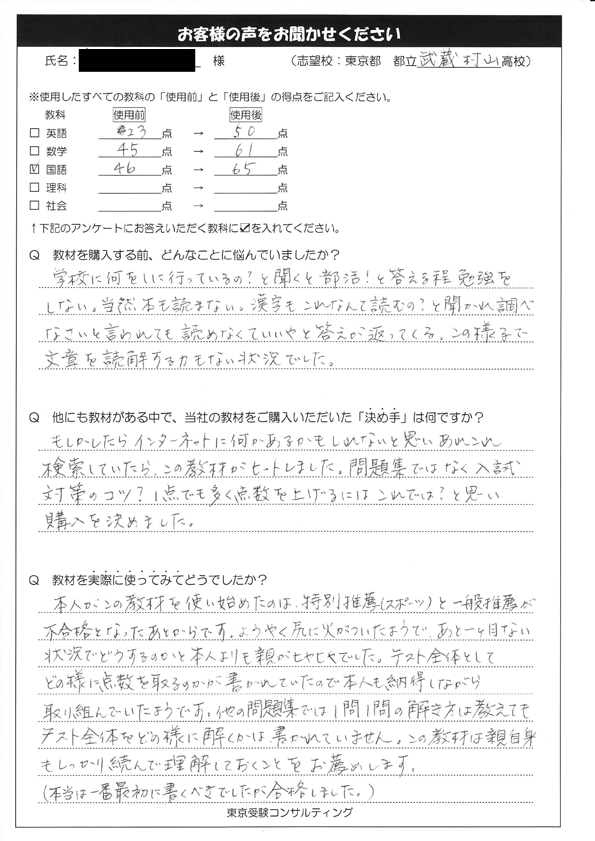 お客様の声をお聞かせください
氏名： 様 （志望校：東京都 都立武蔵村山高校）
※使用したすべての教科の「使用前」と「使用後」の得点をご記入ください。
教科 使用前 使用後
□ 英語 23点 → 50点
□ 数学 45点 → 61点
☑ 国語 46点 → 65点
□ 理科 点 → 点
□ 社会 点 → 点
↑下記のアンケートにお答えいただく教科に☑を入れてください。
Q 教材を購入する前、どんなことに悩んでいましたか？
学校に何をしに行っているの？と聞くと部活！と答える程勉強を
しない。当然本も読まない。漢字もこれなんて読むの？と聞かれ調べ
なさいと言われても読めなくていいやと答えが返ってくる。この様子で
文章を読解する力もない状況でした。
Q 他にも教材がある中で、当社の教材をご購入いただいた「決め手」は何ですか？
もしかしたらインターネットに何かあるかもしれないと思いあれこれ
検索していたら、この教材がヒットしました。問題集ではなく入試
対策のコツ？1点でも多く点数を上げるにはこれでは？と思い
購入を決めました。
Q 教材を実際に使ってみてどうでしたか？
本人がこの教材を使い始めたのは、特別推薦(スポーツ)と一般推薦が
不合格となったあとからです。ようやく尻に火がついたようで、あと一ヶ月ない
状況でどうするのかと本人よりも親がヒヤヒヤでした。テスト全体として
どの様に点数を取るのかが書かれていたので本人も納得しながら
取り組んでいたようです。他の問題集では1問1問の解き方は教えても
テスト全体をどの様に解くかは書かれていません。この教材は親自身
もしっかり読んで理解しておくことをお薦めします。
(本当は一番最初に書くべきでしたが合格しました。)
東京受験コンサルティング